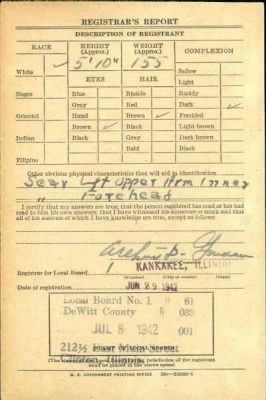 REGISTRAR'S REPORT
DESCRIPTION OF REGISTRANT
RACE HEIGHT (Approx.) WEIGHT (Approx.) COMPLEXION
White ✓ 5' 10" 155 Sallow
EYES HAIR Light
Negro Blue Blonde Ruddy
Gray Red Dark ✓
Oriental Hazel Brown ✓ Freckled
Brown ✓ Black Light brown
Indian Black Gray Dark brown
Bald Black
Filipino
Other obvious physical characteristics that will aid in identification
Scar Left Upper Arm Inner
" Forehead
I certify that my answers are true; that the person registered has read or has had
read to him his own answers; that I have witnessed his signature or mark and that
all of his answers of which I have knowledge are true, except as follows:
Registrar for Local Board 1 KANKAKEE, ILLINOIS
Date of registration JUN 29 1942
Local Board No. 1 61
DeWitt County 039
JUL 8 1942 001
212½ Main Street
Clinton, Illinois
U. S. GOVERNMENT PRINTING OFFICE